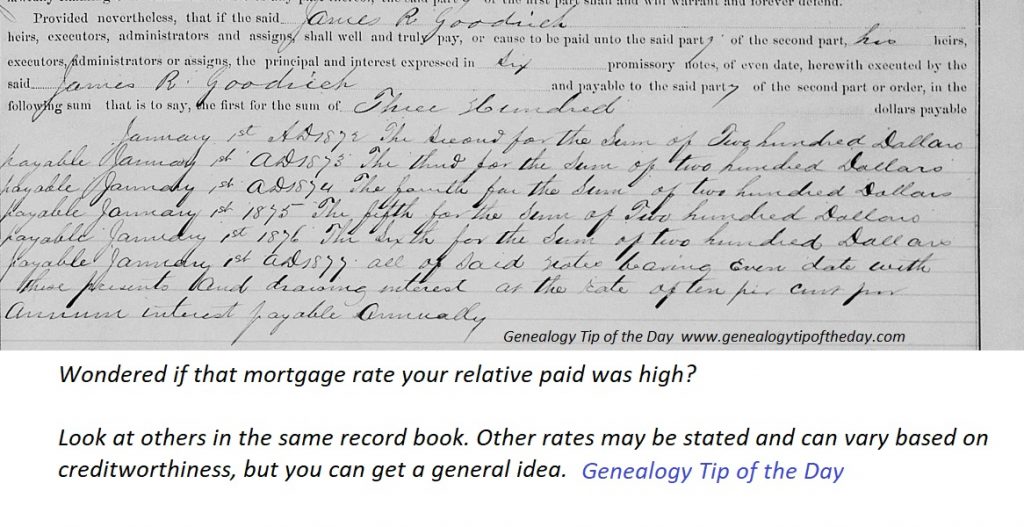 of the first part shall and will warrant and forever defend.
Provided nevertheless, that if the said James R Goodrich
heirs, executors, administrators and assigns, shall well and truly pay, or cause to be paid unto the said party of the second part, his heirs,
executors, administrators or assigns, the principal and interest expressed in six promissory notes, of even date, herewith executed by the
said James R. Goodrich and payable to the said party of the second part or order, in the
following sum that is to say, the first for the sum of Three Hundred dollars payable
January 1st AD 1872 The Second for the Sum of Two hundred Dollars
payable January 1st AD 1873 The third for the Sum of two hundred Dollars
payable January 1st AD 1874 The fourth for the Sum of two hundred Dollars
payable January 1st 1875 The fifth for the Sum of Two hundred Dollars
payable January 1st 1876 The Sixth for the Sum of two hundred Dollars
payable January 1st AD 1877 all of Said notes bearing Even date with
these presents and drawing interest at the rate of ten per cent per
Annum interest payable Annually
Genealogy Tip of the Day www.genealogytipoftheday.com
Wondered if that mortgage rate your relative paid was high?
Look at others in the same record book. Other rates may be stated and can vary based on
creditworthiness, but you can get a general idea. Genealogy Tip of the Day